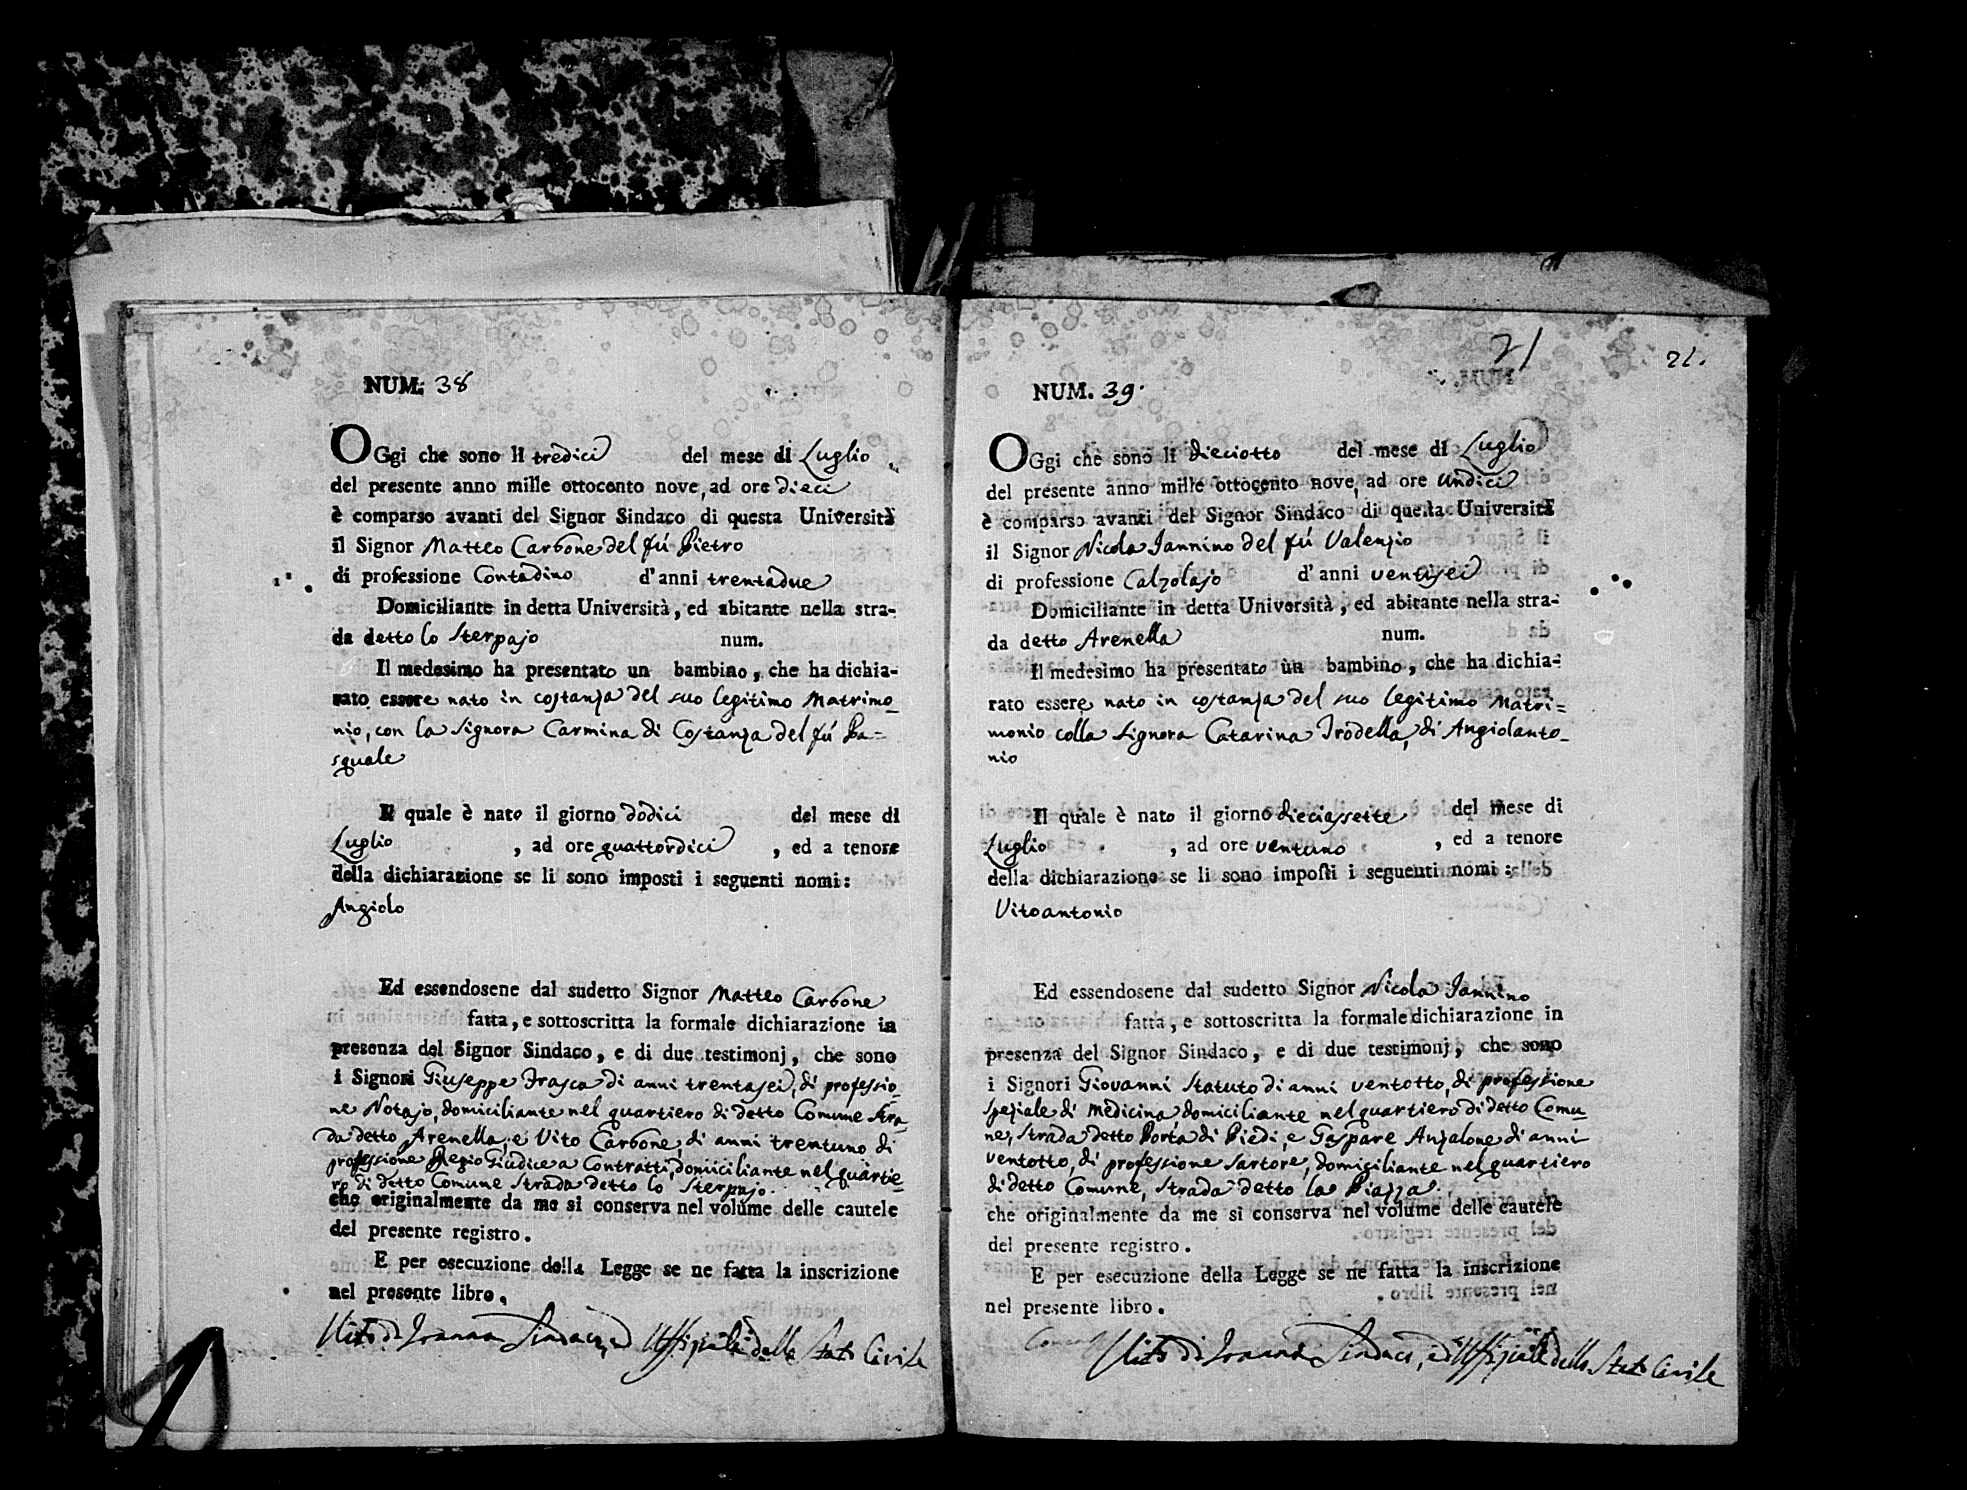 NUM. 38
OGgi che sono li tredici del mese di Luglio
del presente anno mille ottocento nove, ad ore dieci
è comparso avanti del Signor Sindaco di questa Università
il Signor Matteo Carbone del fú Pietro
di professione Contadino d'anni trentadue
Domiciliante in detta Università, ed abitante nella stra-
da detto lo Sterpajo num.
Il medesimo ha presentato un bambino, che ha dichia-
rato essere nato in costanza del suo legitimo Matrimo_
nio, con la Signora Carmina di Costanza del fú Pa=
squale
Il quale è nato il giorno dodici del mese di
Luglio , ad ore quattordici , ed a tenore
della dichiarazione se li sono imposti i seguenti nomi:
Angiolo
Ed essendosene dal sudetto Signor Matteo Carbone
fatta, e sottoscritta la formale dichiarazione in
presenza del Signor Sindaco, e di due testimonj, che sono
i Signori Giuseppe Frasca di anni trentasei, di professio_
ne Notajo, domiciliante nel quartiero di detto Comune Stra_
da detto Arenella, e Vito Carbone, di anni trentuno di
professione Regio Giudice a Contratti, domiciliante nel quartie_
ro di detto Comune Strada detto lo Sterpajo.
che originalmente da me si conserva nel volume delle cautele
del presente registro.
E per esecuzione della Legge se ne fatta la inscrizione
nel presente libro.
Vito di Ioanna Sindaco, ed Uffiziale dello Stato Civile
21
21.
NUM. 39.
OGgi che sono li dieciotto del mese di Luglio
del presente anno mille ottocento nove, ad ore undici
è comparso avanti del Signor Sindaco di questa Università
il Signor Nicola Iannino del fú Valenzio
di professione Calzolajo d'anni ventisei
Domiciliante in detta Università, ed abitante nella stra-
da detto Arenella num.
Il medesimo ha presentato un bambino, che ha dichia-
rato essere nato in costanza del suo legitimo Matri=
monio colla Signora Catarina Trodella, di Angiolanto_
nio
Il quale è nato il giorno dieciassette del mese di
Luglio , ad ore ventuno , ed a tenore
della dichiarazione se li sono imposti i seguenti nomi:
Vitoantonio
Ed essendosene dal sudetto Signor Nicola Iannino
fatta, e sottoscritta la formale dichiarazione in
presenza del Signor Sindaco, e di due testimonj, che sono
i Signori Giovanni Statuto di anni ventotto, di professione
speziale di Medicina domiciliante nel quartiero di detto Comu_
ne, Strada detto Porta di Piedi, e Gaspare Anzalone di anni
ventotto, di professione Sartore, domiciliante nel quartiero
di detto Comune, Strada detto la Piazza.
che originalmente da me si conserva nel volume delle cautele
del presente registro.
E per esecuzione della Legge se ne fatta la inscrizione
nel presente libro.
Vito di Ioanna Sindaco, ed Uffiziale dello Stato Civile